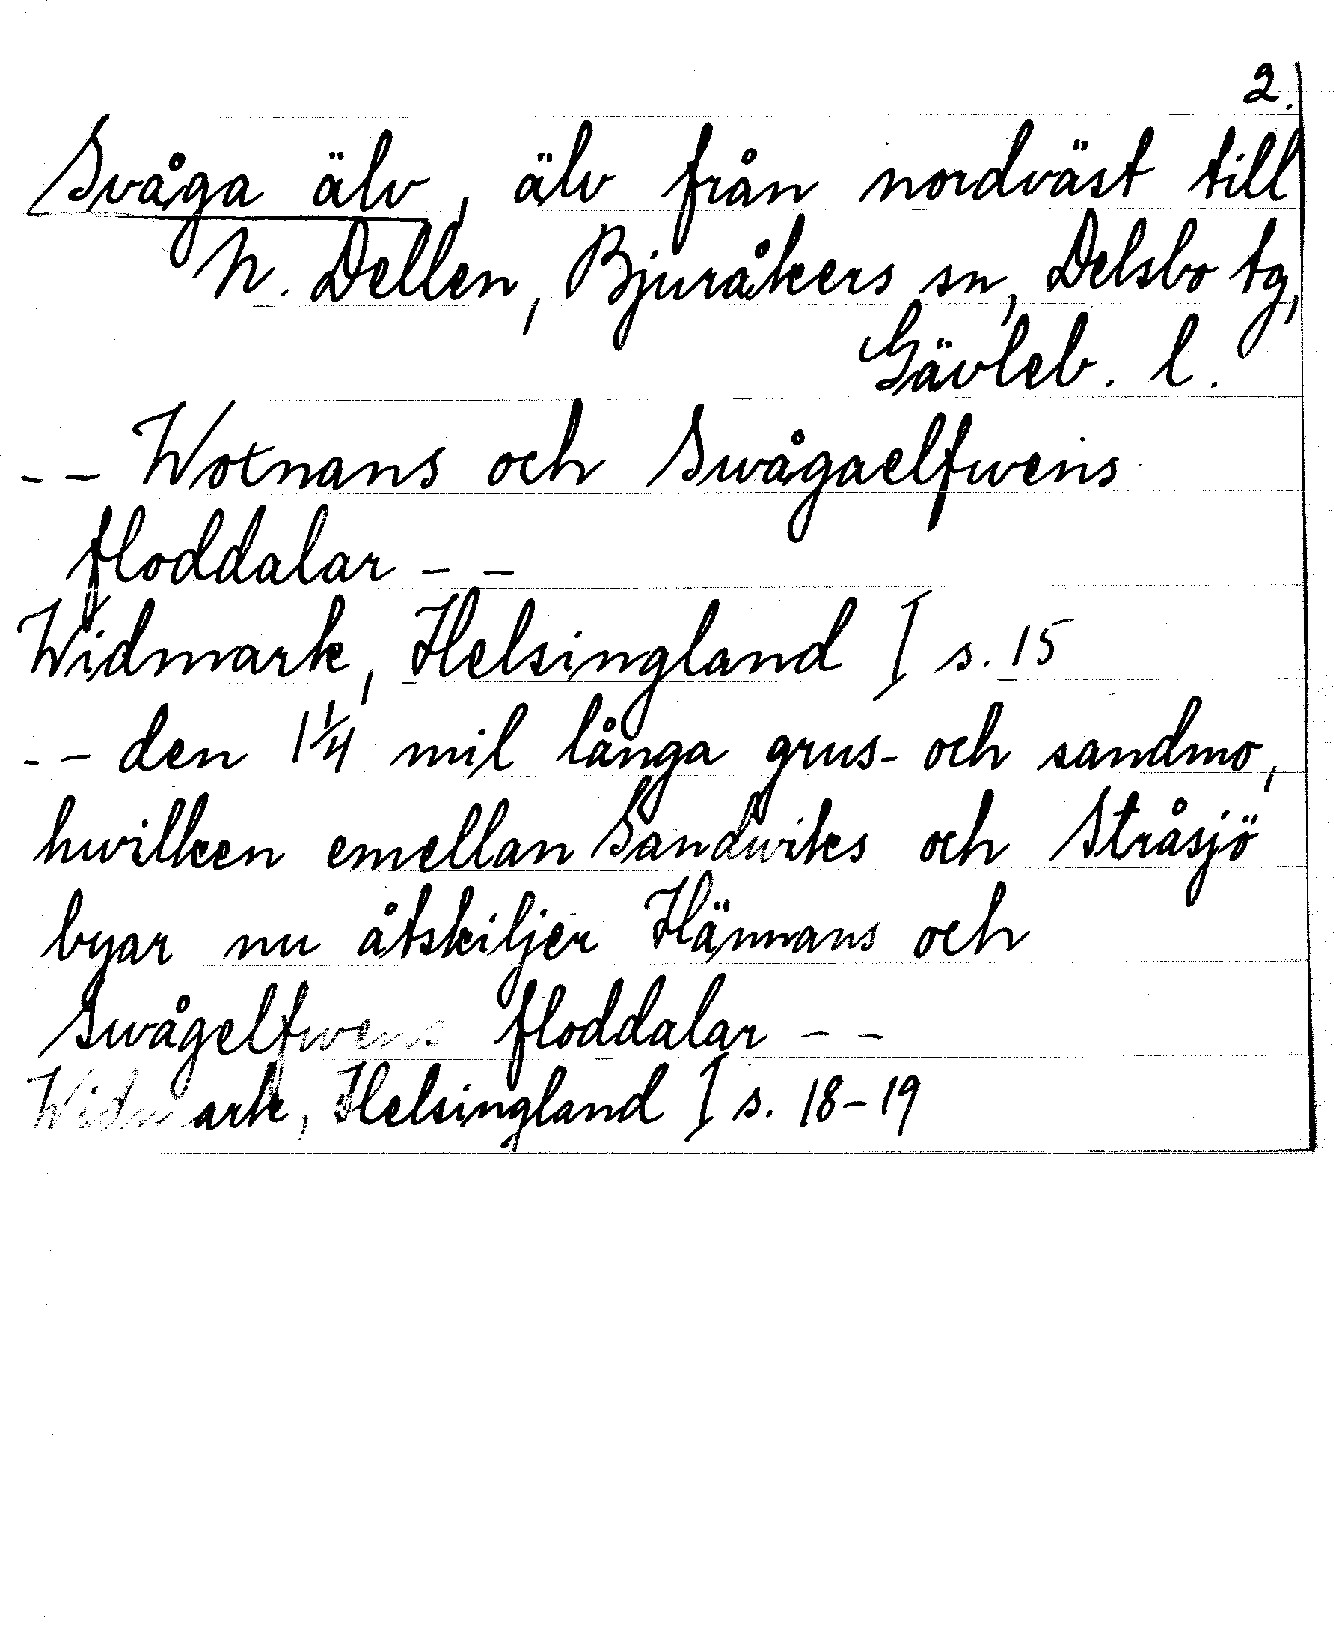 2.
Svåga älv, älv från nordväst till
N. Dellen, Bjuråkers sn, Delsbo tg,
Gävleb. l.
-- Wotnans och Swågaelfwens
floddalar --
Widmark, Helsingland I s. 15
-- den 1 1/4 mil långa grus- och sandmo,
hwilken emellan Sandwiks och Stråsjö
byar nu åtskiljer Hännans och
Swågelfwens floddalar --
Widmark, Helsingland I s. 18-19